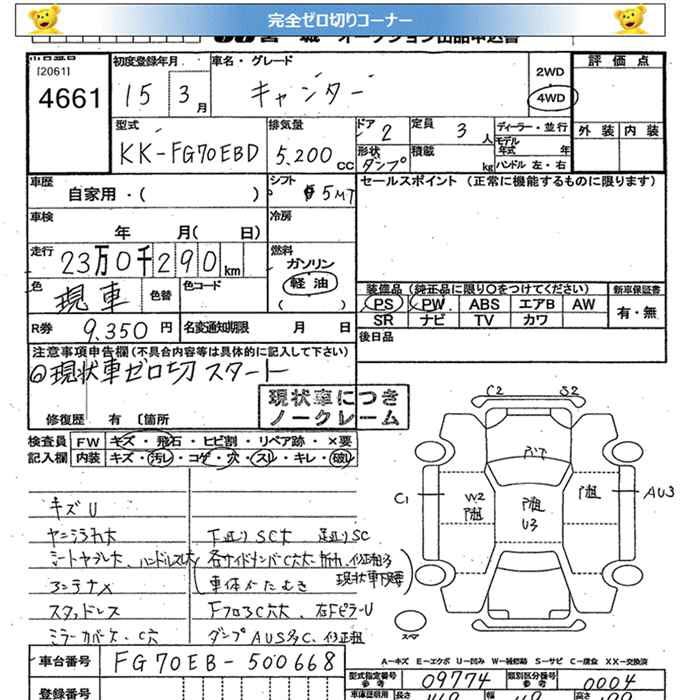 完全ゼロ切りコーナー
オークション出品申込書
[2061]
4661
初度登録年月
15 3月
車名・グレード
キャンター
2WD
4WD
評価点
外装 内装
型式
KK-FG70EBD
排気量
5.200 CC
ドア 2
形状 ダンプ
定員 3 人
積載 kg
ディーラー・並行
モデル年式 年
ハンドル 左・右
車歴
自家用・( )
シフト 5MT
セールスポイント (正常に機能するものに限ります)
車検
年 月( 日)
冷房
走行
23万0千290km
燃料
ガソリン
軽油
( )
色
現車
色替
色コード
装備品 (純正品に限り○をつけてください)
PS PW ABS エアB AW
SR ナビ TV カワ
新車保証書
有・無
R券 9.350 円
名変通知期限 月 日
後日品
注意事項申告欄(不具合内容等は具体的に記入して下さい)
◎現状車ゼロ切スタート
現状車につき
ノークレーム
修復歴 有 〔箇所
検査員
記入欄
FW キズ・飛石・ヒビ割・リペア跡・×要
内装 キズ・汚レ・コゲ・穴・スレ・キレ・破レ
キズU
ヤニヨゴレ大 下廻りSC大 足廻りSC
シートヤブレ大、ハンドルスレ大
車体かたむき
現状車
スタッドレス
ミラーカバーケ、C穴
C2 S2
C1
W2
U3
AU3
スペア
A−キズ E−エクボ U−凹み W−補修跡 S−サビ C−腐食 XX−交換済
車台番号
FG70EB-500668
型式指定番号
参考
09774
類別区分番号
参考
0004
登録番号
車庫証明用
長さ
幅
高さ